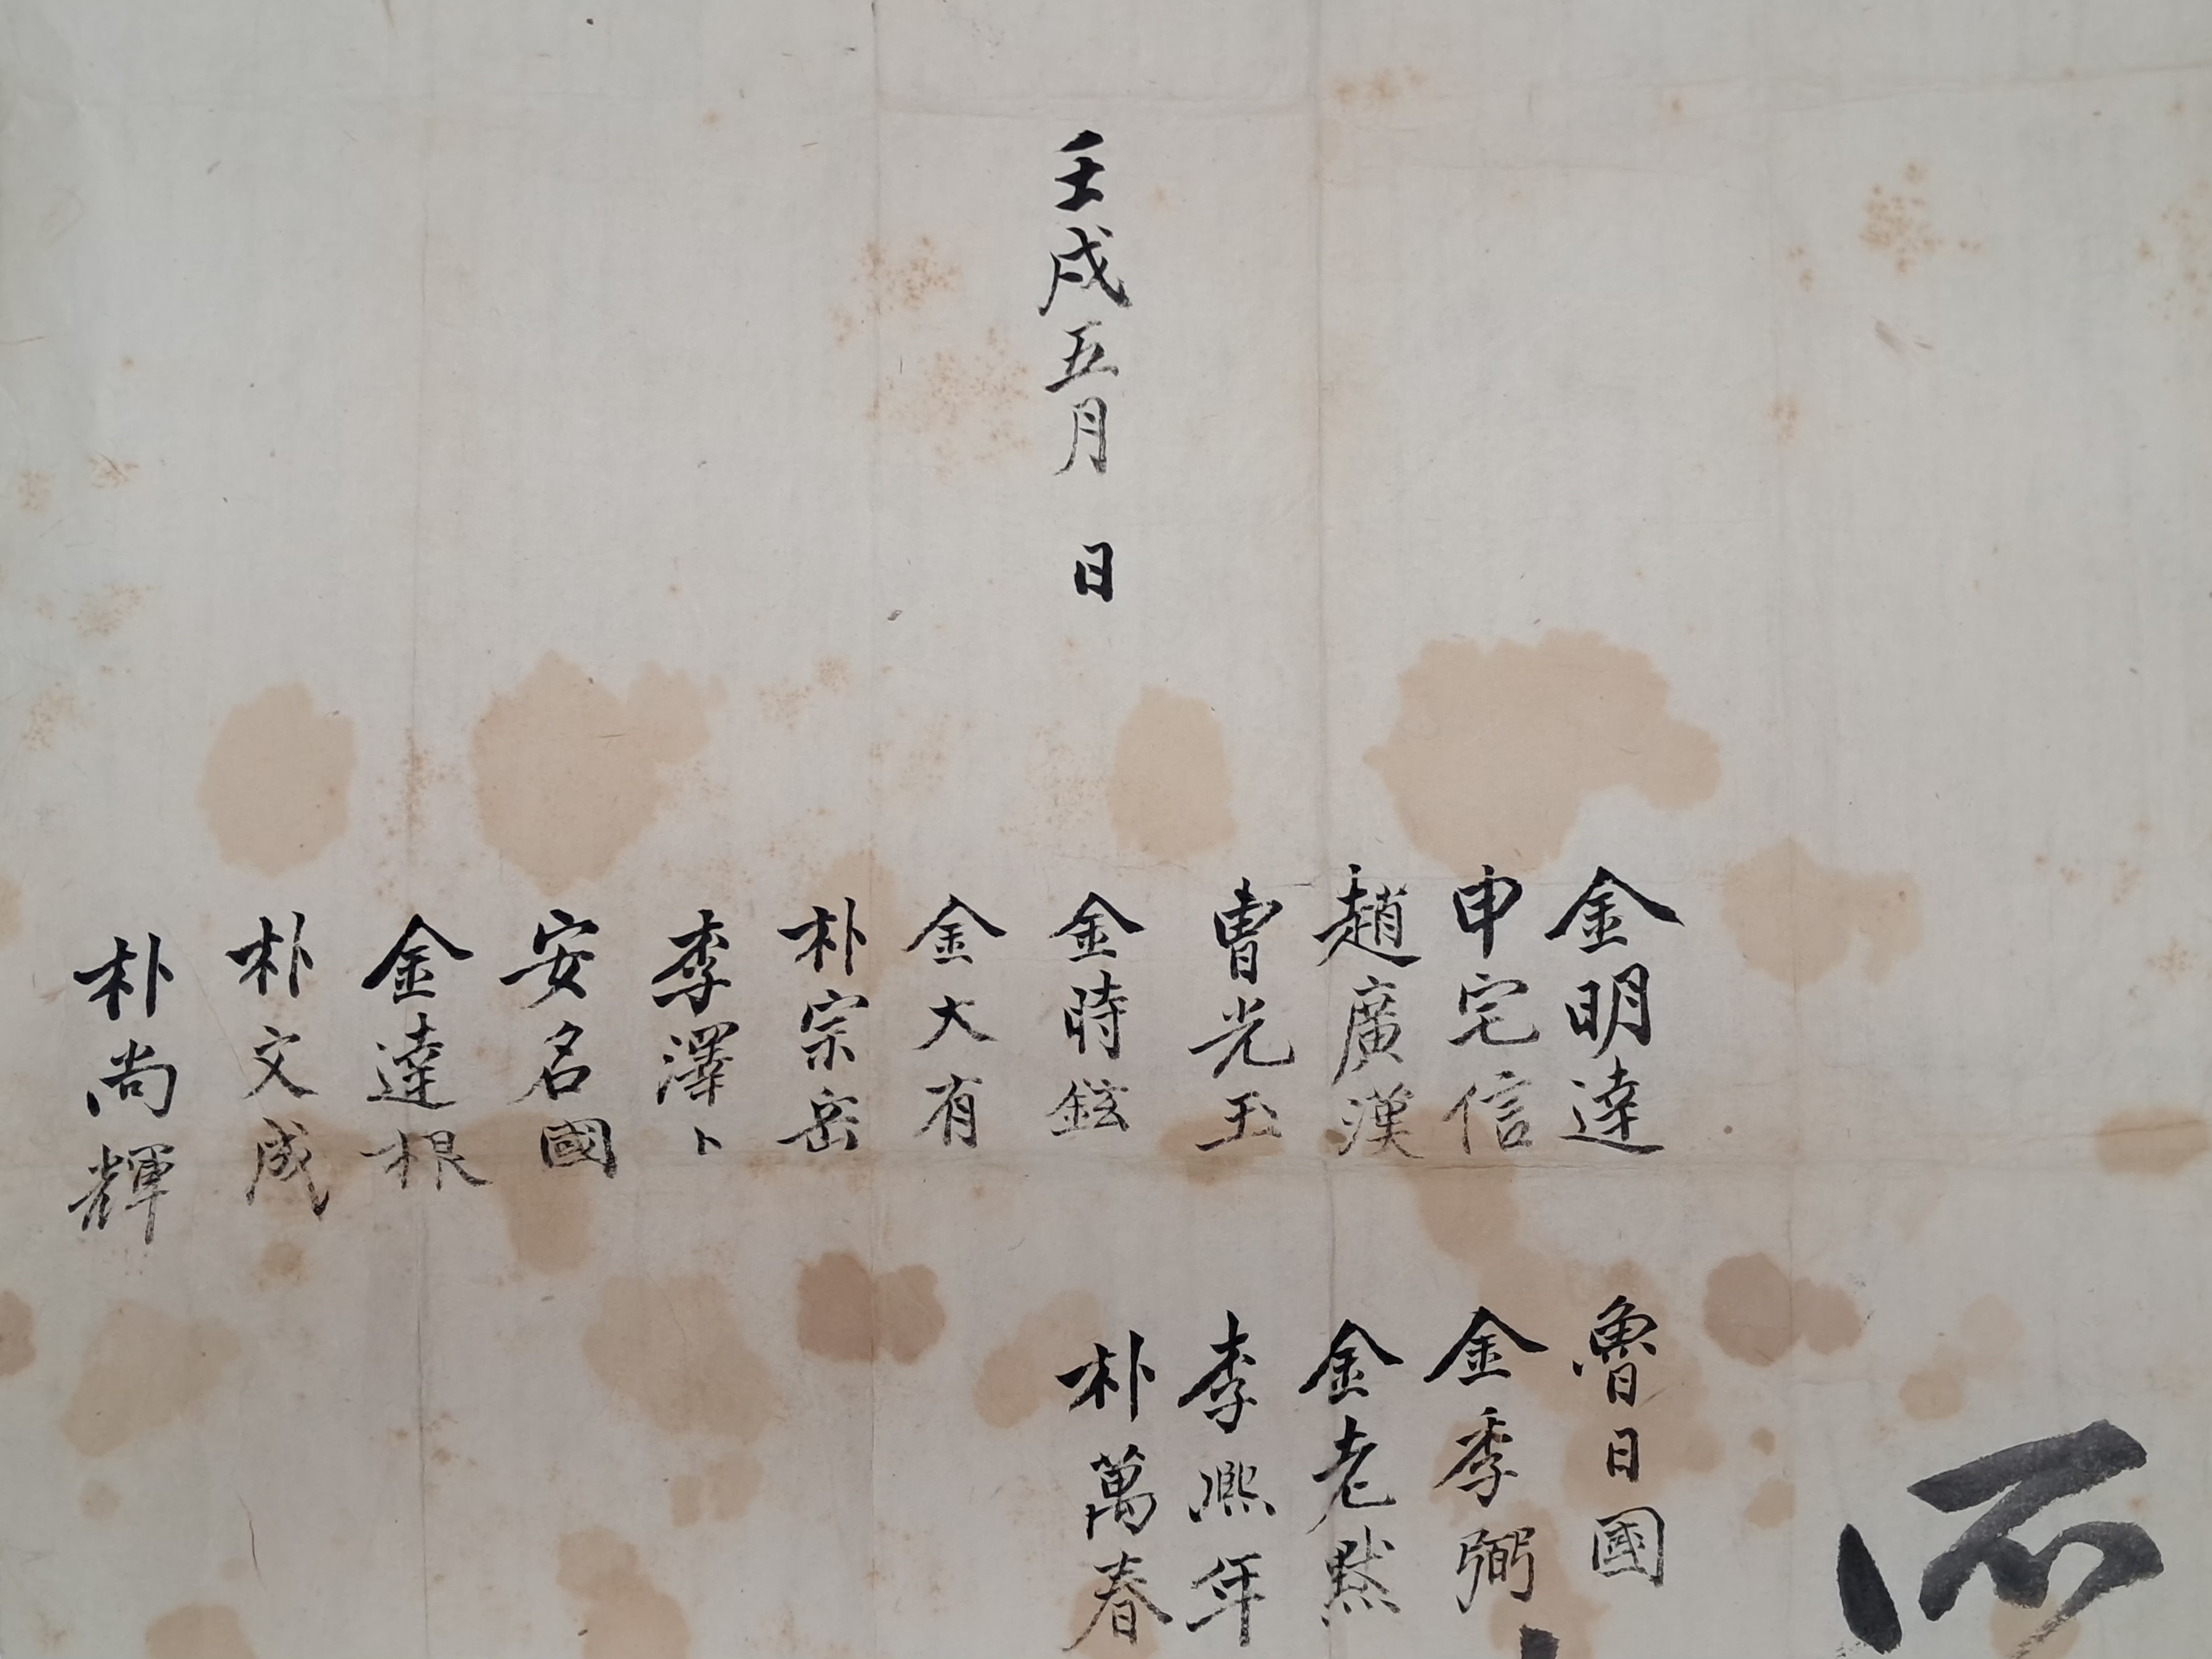 壬戌五月　日
金明達
申宅信
趙廣漢
曺光玉
金時鉉
金大有
朴宗岳
李澤卜
安名國
金達根
朴文成
朴尚輝
魯日國
金季弼
金老㸃
李熙年
朴萬春